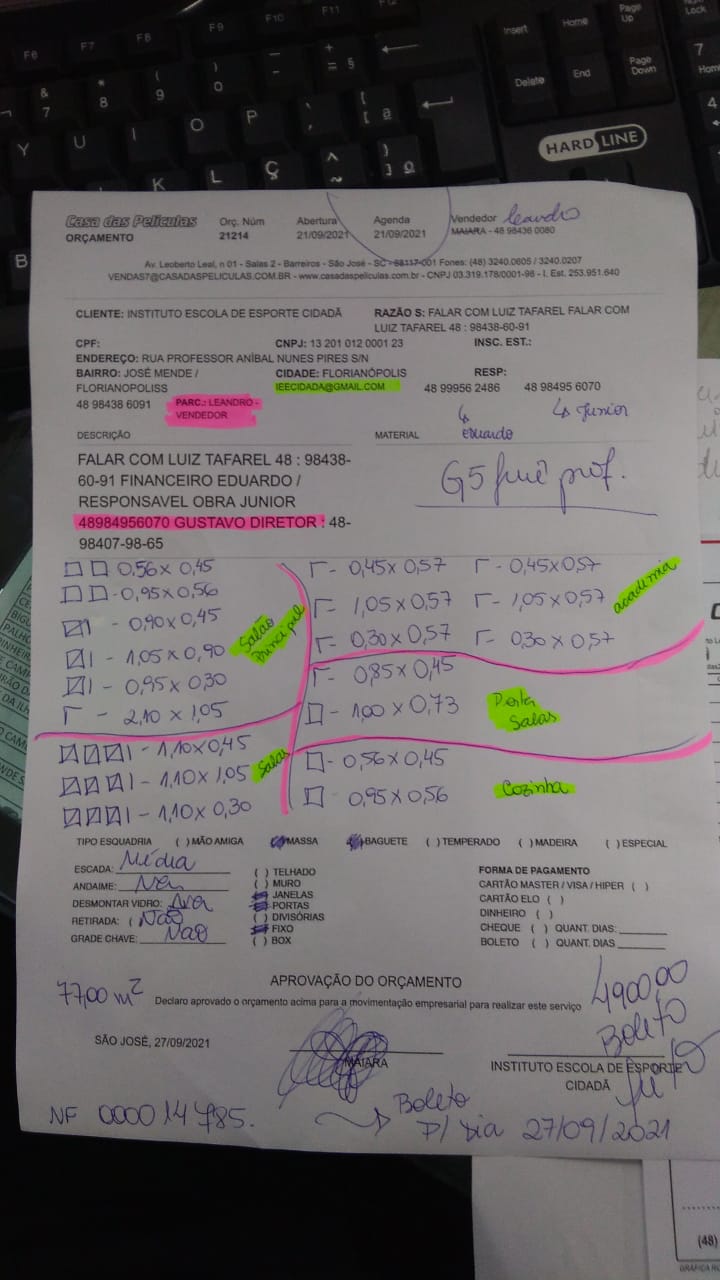 F6 F7 F8 F9 F10 F11 F12
Insert Home Page Up
Delete End Page Down
Num Lock
& 7 * 8 ( 9 ) 0 - + = §
7 Home
Y U I O P [ ª
K L Ç ^ ~ ] º
4
HARD LINE
B
Casa das Películas
ORÇAMENTO
Orç. Núm
21214
Abertura
21/09/2021
Agenda
21/09/2021
Vendedor Leandro
MAIARA - 48 98436 0080
Av. Leoberto Leal, n 01 - Salas 2 - Barreiros - São José - SC - 88117-001 Fones: (48) 3240.0605 / 3240.0207
VENDAS7@CASADASPELICULAS.COM.BR - www.casadaspeliculas.com.br - CNPJ 03.319.178/0001-98 - I. Est. 253.951.640
CLIENTE: INSTITUTO ESCOLA DE ESPORTE CIDADÃ
RAZÃO S: FALAR COM LUIZ TAFAREL FALAR COM
LUIZ TAFAREL 48 : 98438-60-91
CPF:
CNPJ: 13 201 012 0001 23
INSC. EST.:
ENDEREÇO: RUA PROFESSOR ANÍBAL NUNES PIRES S/N
BAIRRO: JOSÉ MENDE /
FLORIANOPOLISS
CIDADE: FLORIANÓPOLIS
RESP:
IEECIDADA@GMAIL.COM
48 99956 2486
48 98495 6070
48 98438 6091
PARC.: LEANDRO -
VENDEDOR
Eduardo
Junior
DESCRIÇÃO
MATERIAL
FALAR COM LUIZ TAFAREL 48 : 98438-
60-91 FINANCEIRO EDUARDO /
RESPONSAVEL OBRA JUNIOR
48984956070 GUSTAVO DIRETOR : 48-
98407-98-65
G5 fumê prof.
0,56 x 0,45
- 0,95 x 0,56
- 0,90 x 0,45
- 1,05 x 0,90
- 0,95 x 0,30
- 2,10 x 1,05
Salão Principal
- 1,10 x 0,45
- 1,10 x 1,05
- 1,10 x 0,30
Salas
- 0,45 x 0,57 - 0,45 x 0,57
- 1,05 x 0,57 - 1,05 x 0,57
- 0,30 x 0,57 - 0,30 x 0,57
academia
- 0,85 x 0,45
- 1,00 x 0,73
Porta Salas
- 0,56 x 0,45
- 0,95 x 0,56
Cozinha
TIPO ESQUADRIA ( ) MÃO AMIGA MASSA BAGUETE ( ) TEMPERADO ( ) MADEIRA ( ) ESPECIAL
ESCADA: Média
ANDAIME: Não
DESMONTAR VIDRO: Não
RETIRADA: ( Não
GRADE CHAVE: Não
( ) TELHADO
( ) MURO
JANELAS
PORTAS
( ) DIVISÓRIAS
FIXO
( ) BOX
FORMA DE PAGAMENTO
CARTÃO MASTER / VISA / HIPER ( )
CARTÃO ELO ( )
DINHEIRO ( )
CHEQUE ( ) QUANT. DIAS:
BOLETO ( ) QUANT. DIAS
77,00 m²
APROVAÇÃO DO ORÇAMENTO
Declaro aprovado o orçamento acima para a movimentação empresarial para realizar este serviço
4900,00
Boleto
SÃO JOSÉ, 27/09/2021
MAIARA
INSTITUTO ESCOLA DE ESPORTE
CIDADÃ
NF 000014785.
Boleto
p/ dia 27/09/2021
(48)